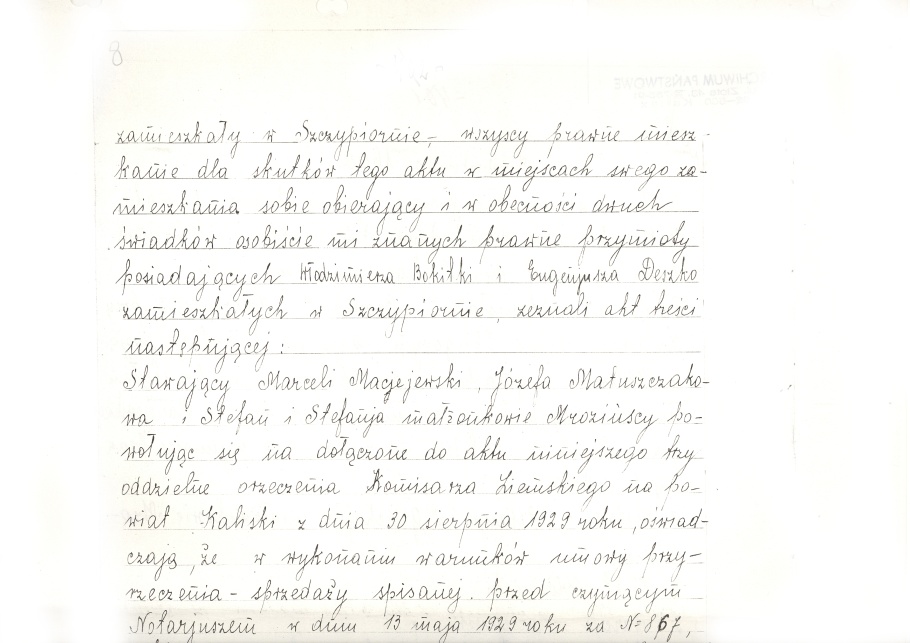 8
zamieszkały w Szczypiornie, wszyscy prawne miesz-
kanie dla skutków tego aktu w miejscach swego za-
mieszkania sobie obierający i w obecności dwuch
świadków osobiście mi znanych prawne przymioty
posiadających Włodzimierza Bokiłki i Eugenjusza Deszko
zamieszkałych w Szczypiornie, zeznali akt treści
następującej:
Stawający Marceli Maciejewski, Józefa Matuszczako-
wa i Stefan i Stefanja małżonkowie Mrozińscy po-
wołując się na dołączone do aktu niniejszego trzy
oddzielne orzeczenia Komisarza Ziemskiego na po-
wiat Kaliski z dnia 30 sierpnia 1929 roku, oświad-
czają, że w wykonaniu warunków umowy przy-
rzeczenia - sprzedaży spisanej przed czyniącym
Notarjuszem w dniu 13 maja 1929 roku za № 867,